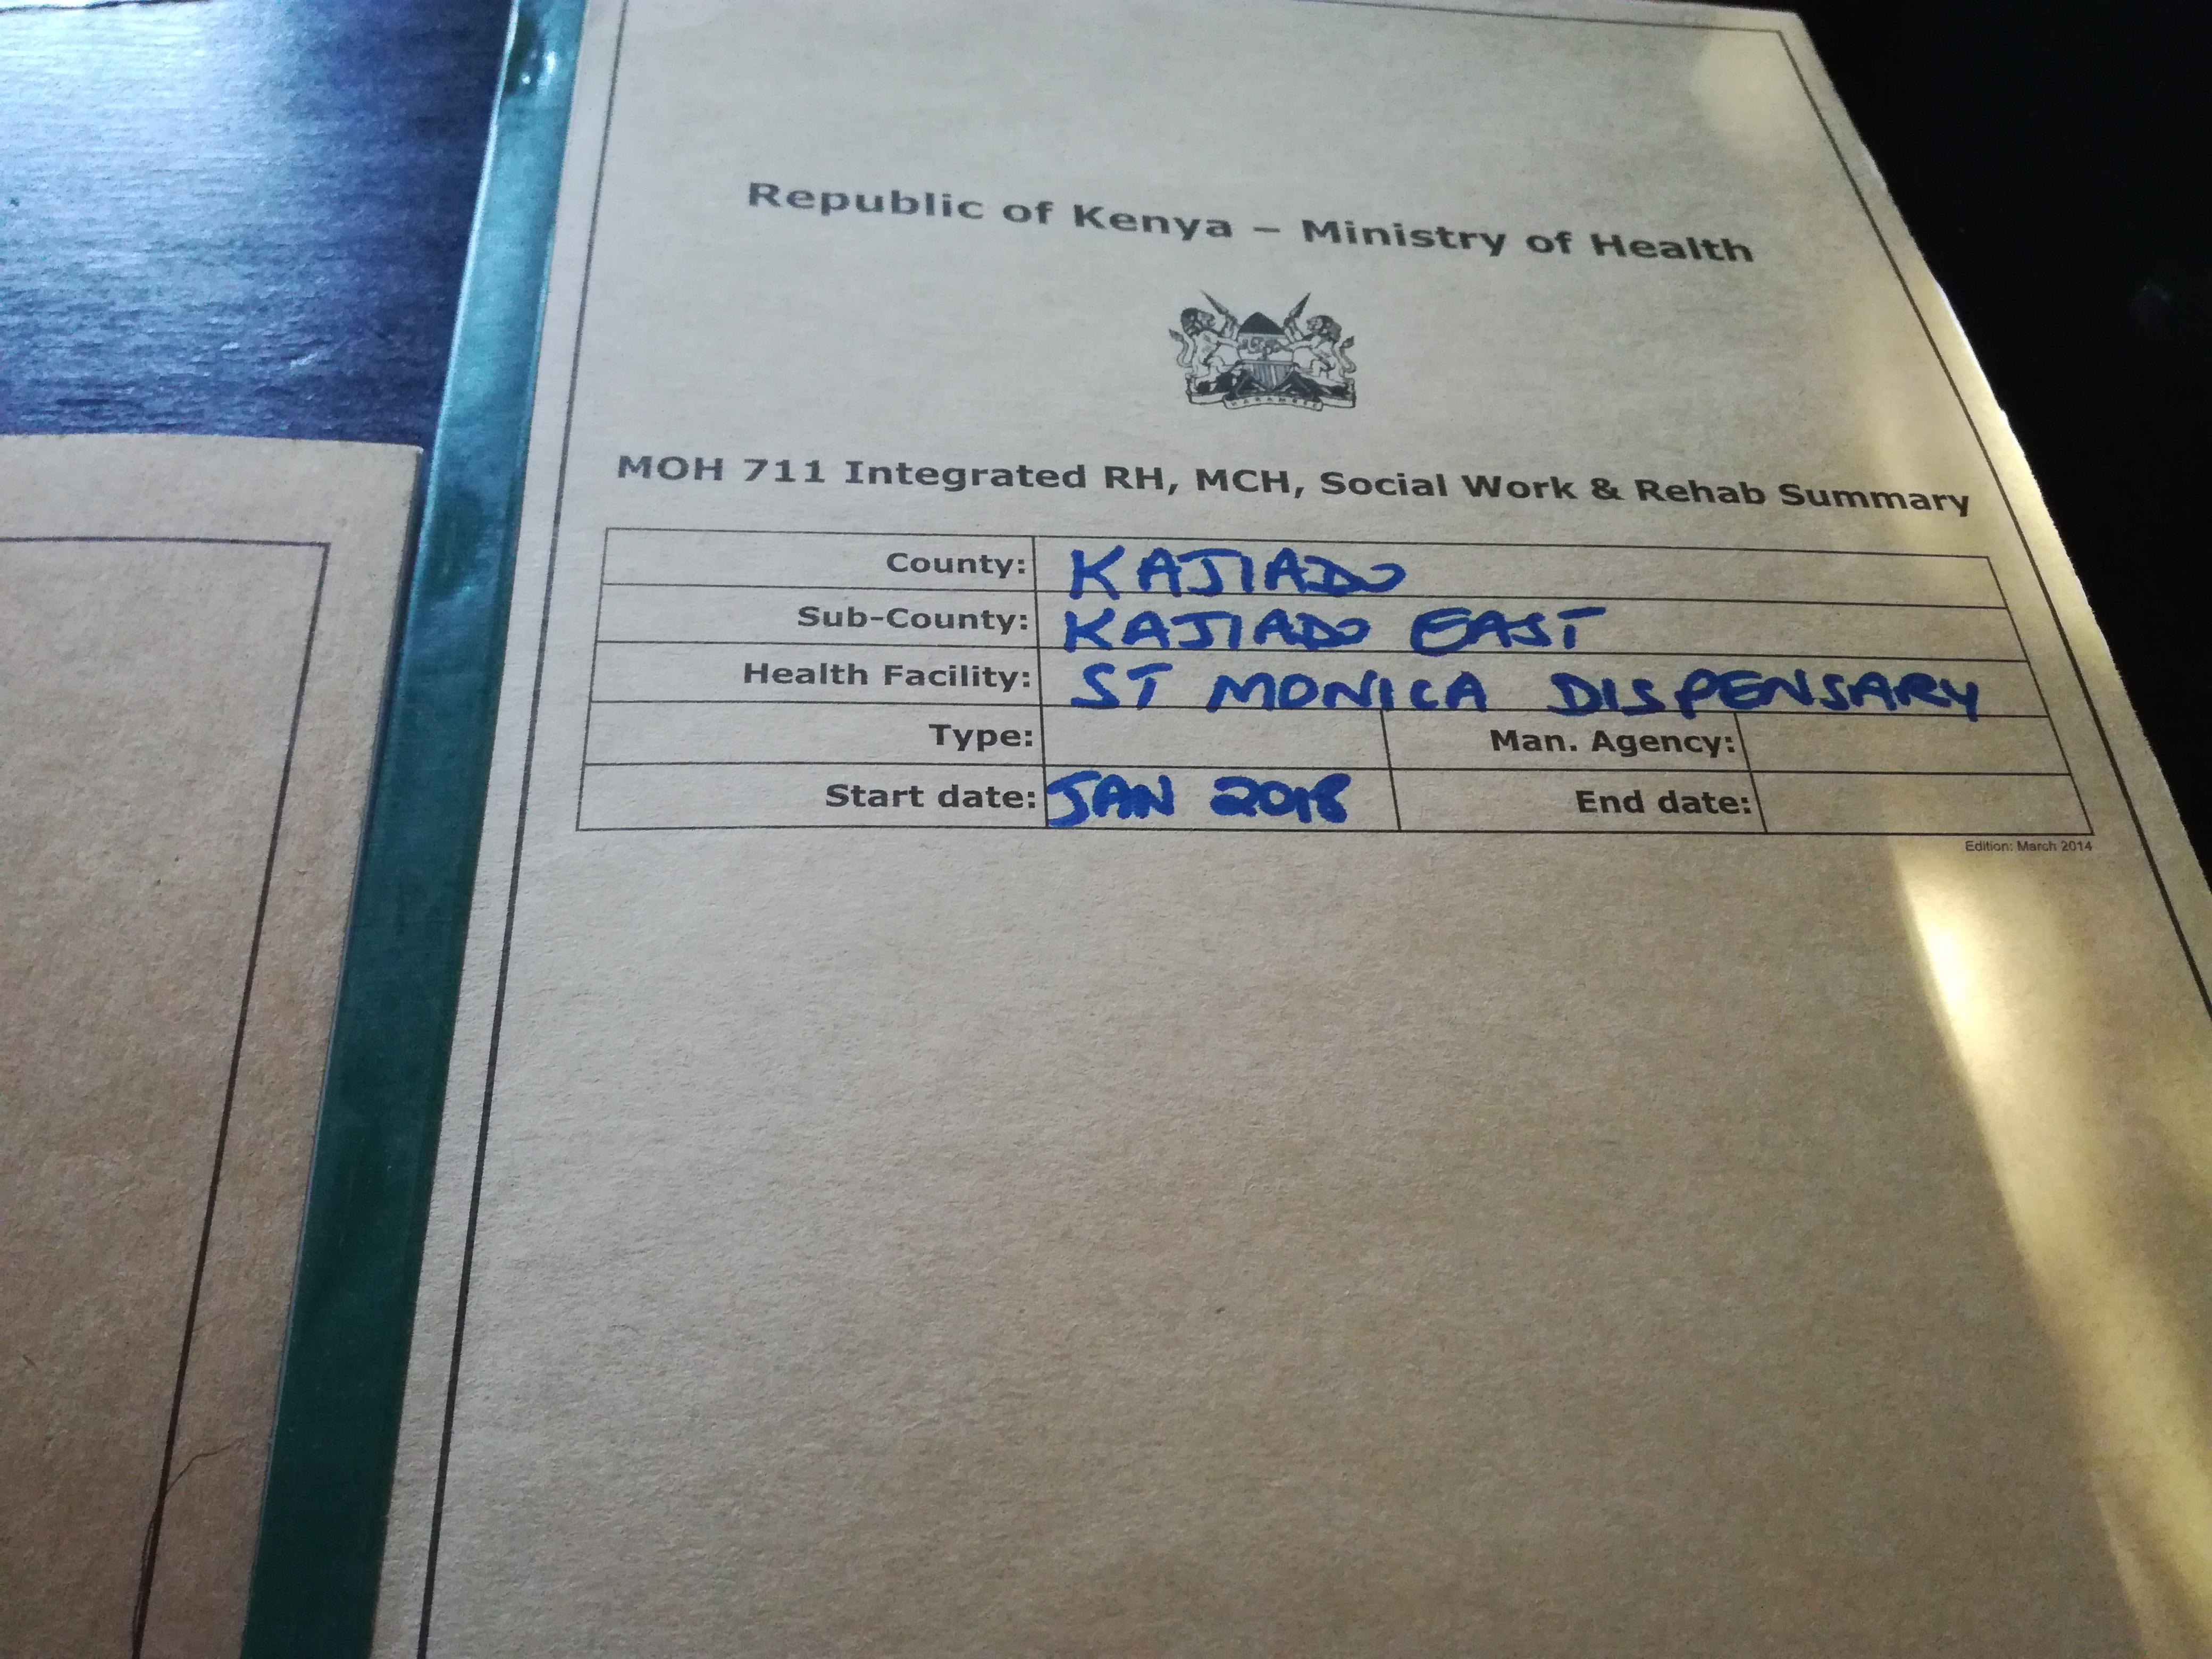 Republic of Kenya – Ministry of Health
HARAMBEE
MOH 711 Integrated RH, MCH, Social Work & Rehab Summary
County: KAJIADO
Sub-County: KAJIADO EAST
Health Facility: ST MONICA DISPENSARY
Type: Man. Agency:
Start date: JAN 2018 End date:
Edition: March 2014